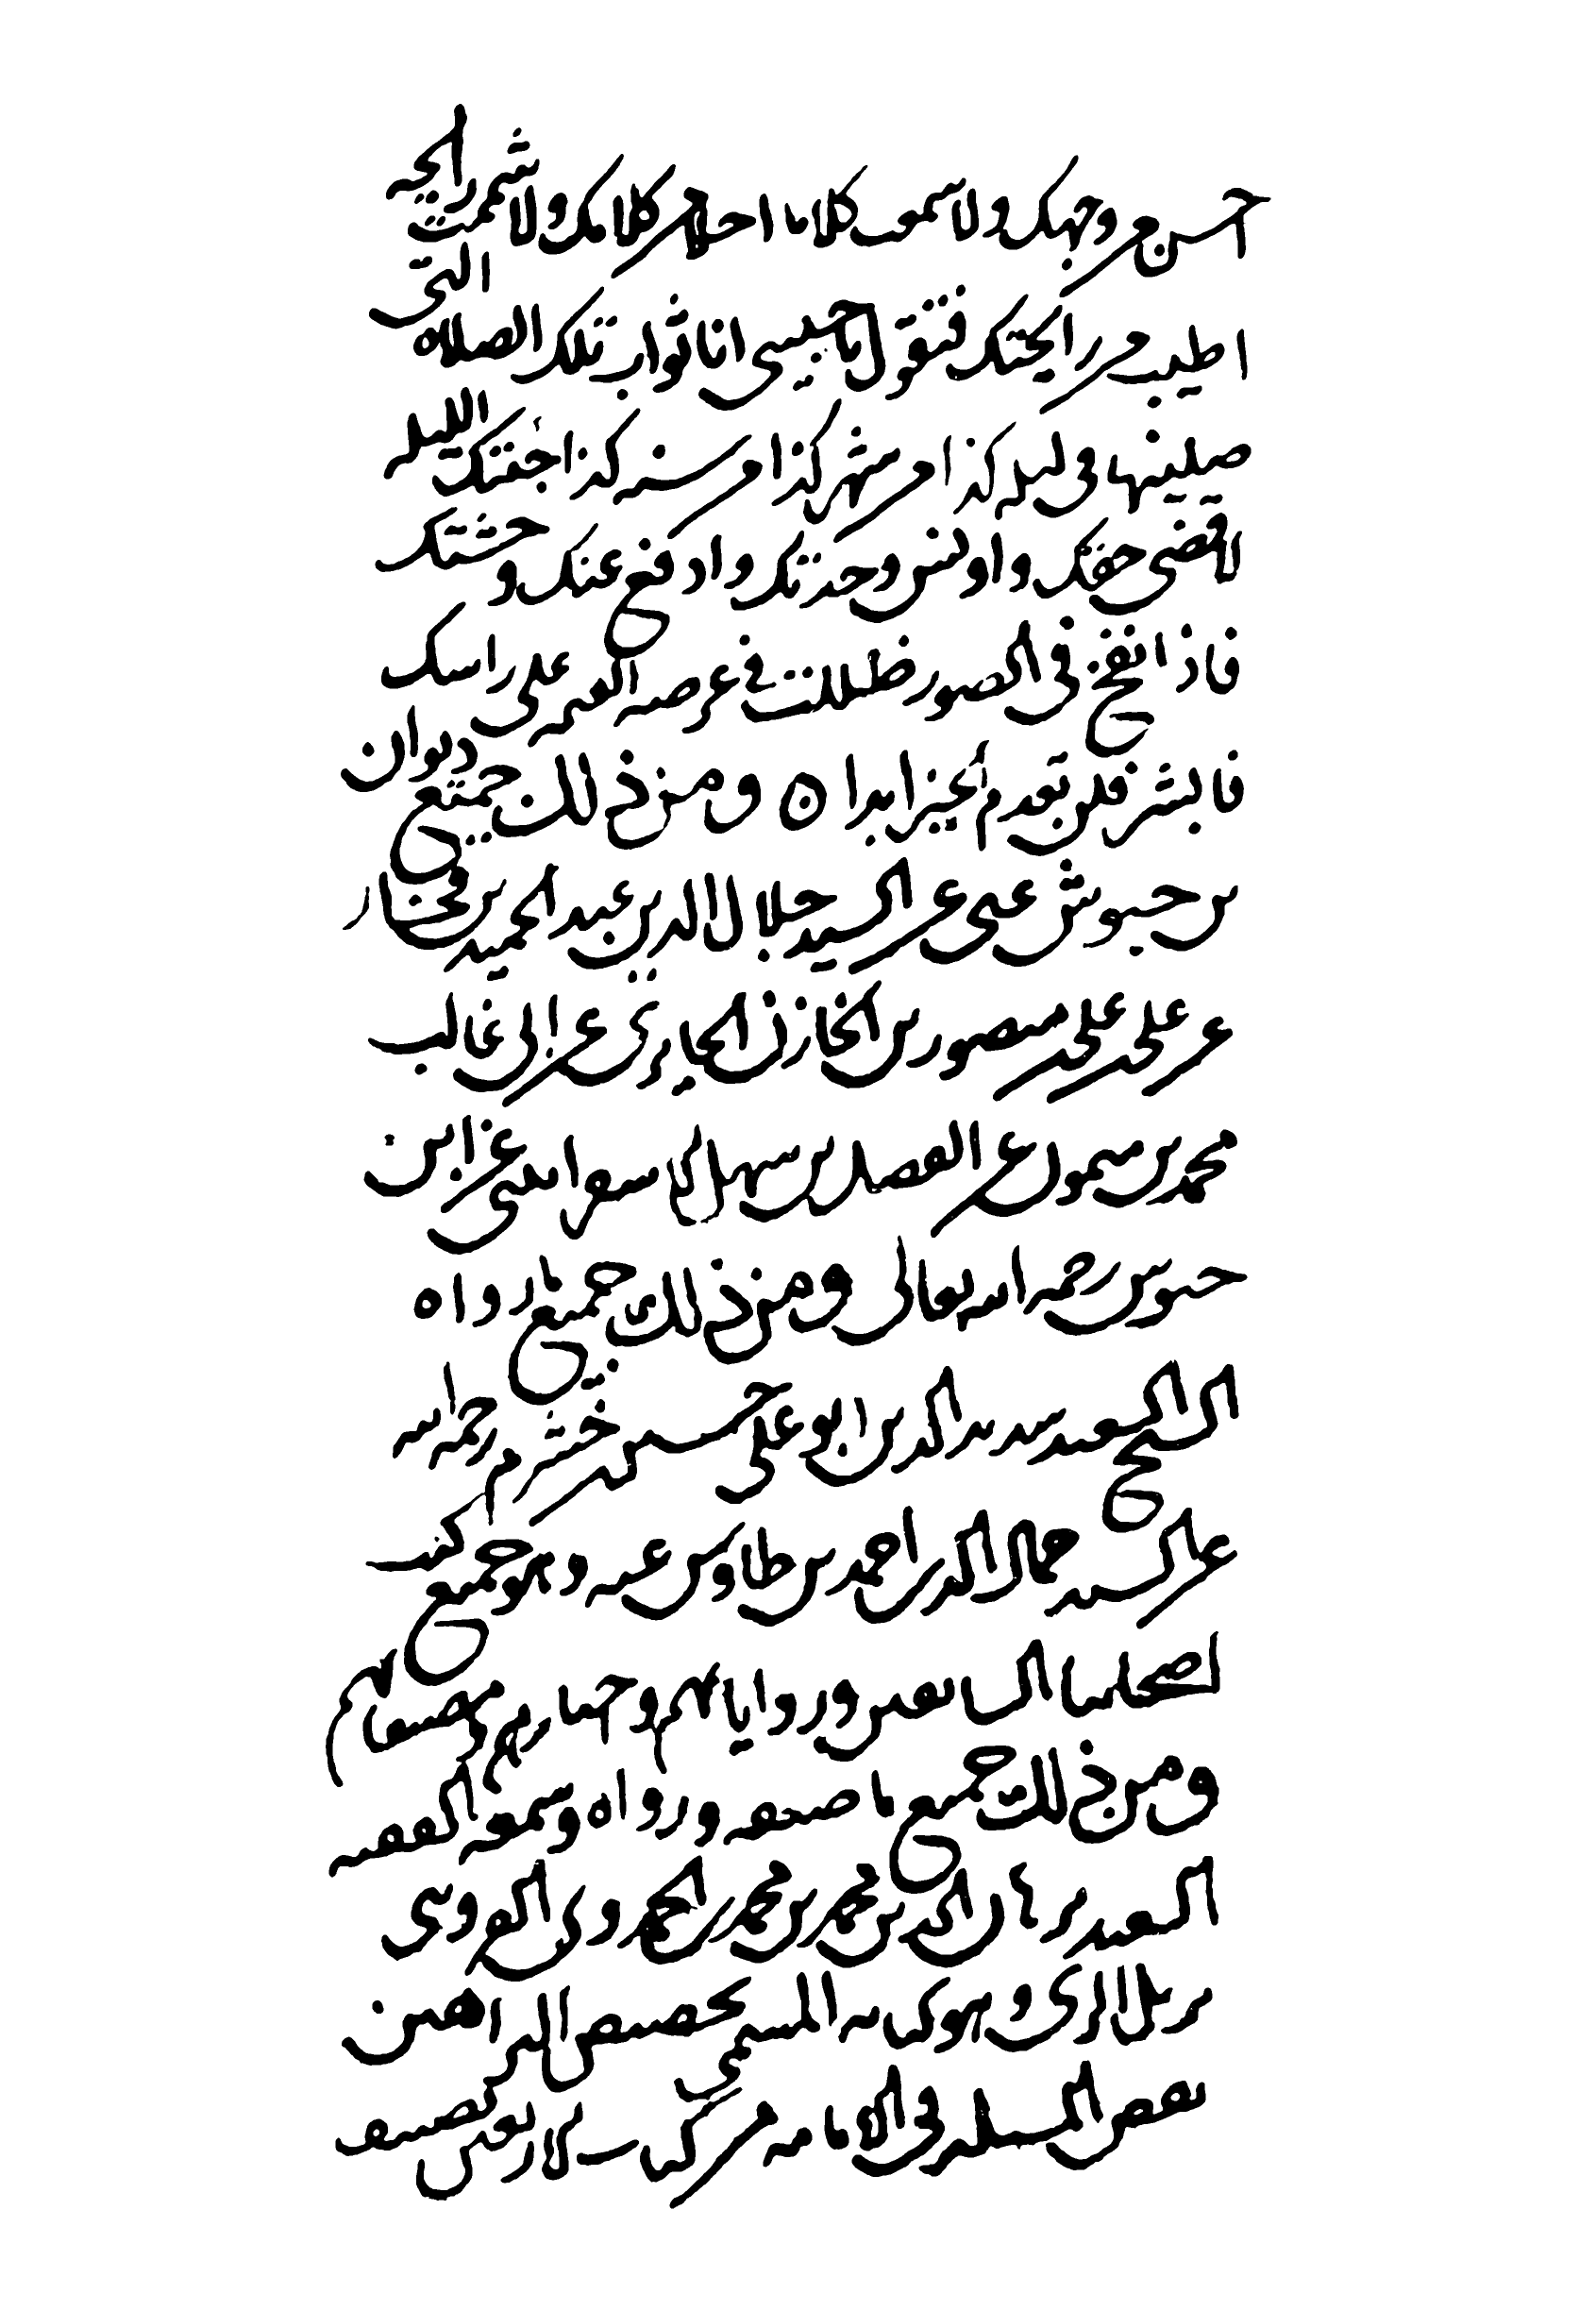 احسن من وجهك ولا سمعت كلاما احلا من كلامك ولا شممت رايحه
اطيب من رايحتك فتقول يا حبيبي انا ثواب تلك الصلاه التي
صليتها في ليله كذا من شهر كذا من سنه كذا جئتك الليله
لاقضي حقك واونس وحدتك وادفع عنك وحشتك
فاذا نفخ في الصور ظللت في عرصه القيمه على راسك
فابشر فلن تعدم الخير ابدا ومن ذلك جميع ديوان
بن حيوش عني عن السيد جلال الدين عبد الحميد بن فخار
عن على بن على بن منصور بن الخازن الحايري عن ابي غالب
محمد بن سهل عن الفضل بن سهل الاسفرايني عن ابن
حيوس رحمه الله تعالى ومن ذلك جميع ما رواه
الشيخ السعيد سديد الدين ابو على حسن بن خشرم رحمه الله
عن السيد جمال الدين احمد بن طاوس عنه وهو جميع كتب
اصحابنا السابقين ورواياتهم واجازاتهم ومصنفاتهم
ومن ذلك جميع ما صنفه ورواه وسمعه الفقيه
السعيد برهان الدين محمد بن محمد الحمدوي القزويني
نزيل الري وهو كتابه المسمى بحصيص البراهين
نقض المسله في الامامه من كتب الاربعين تصنيف